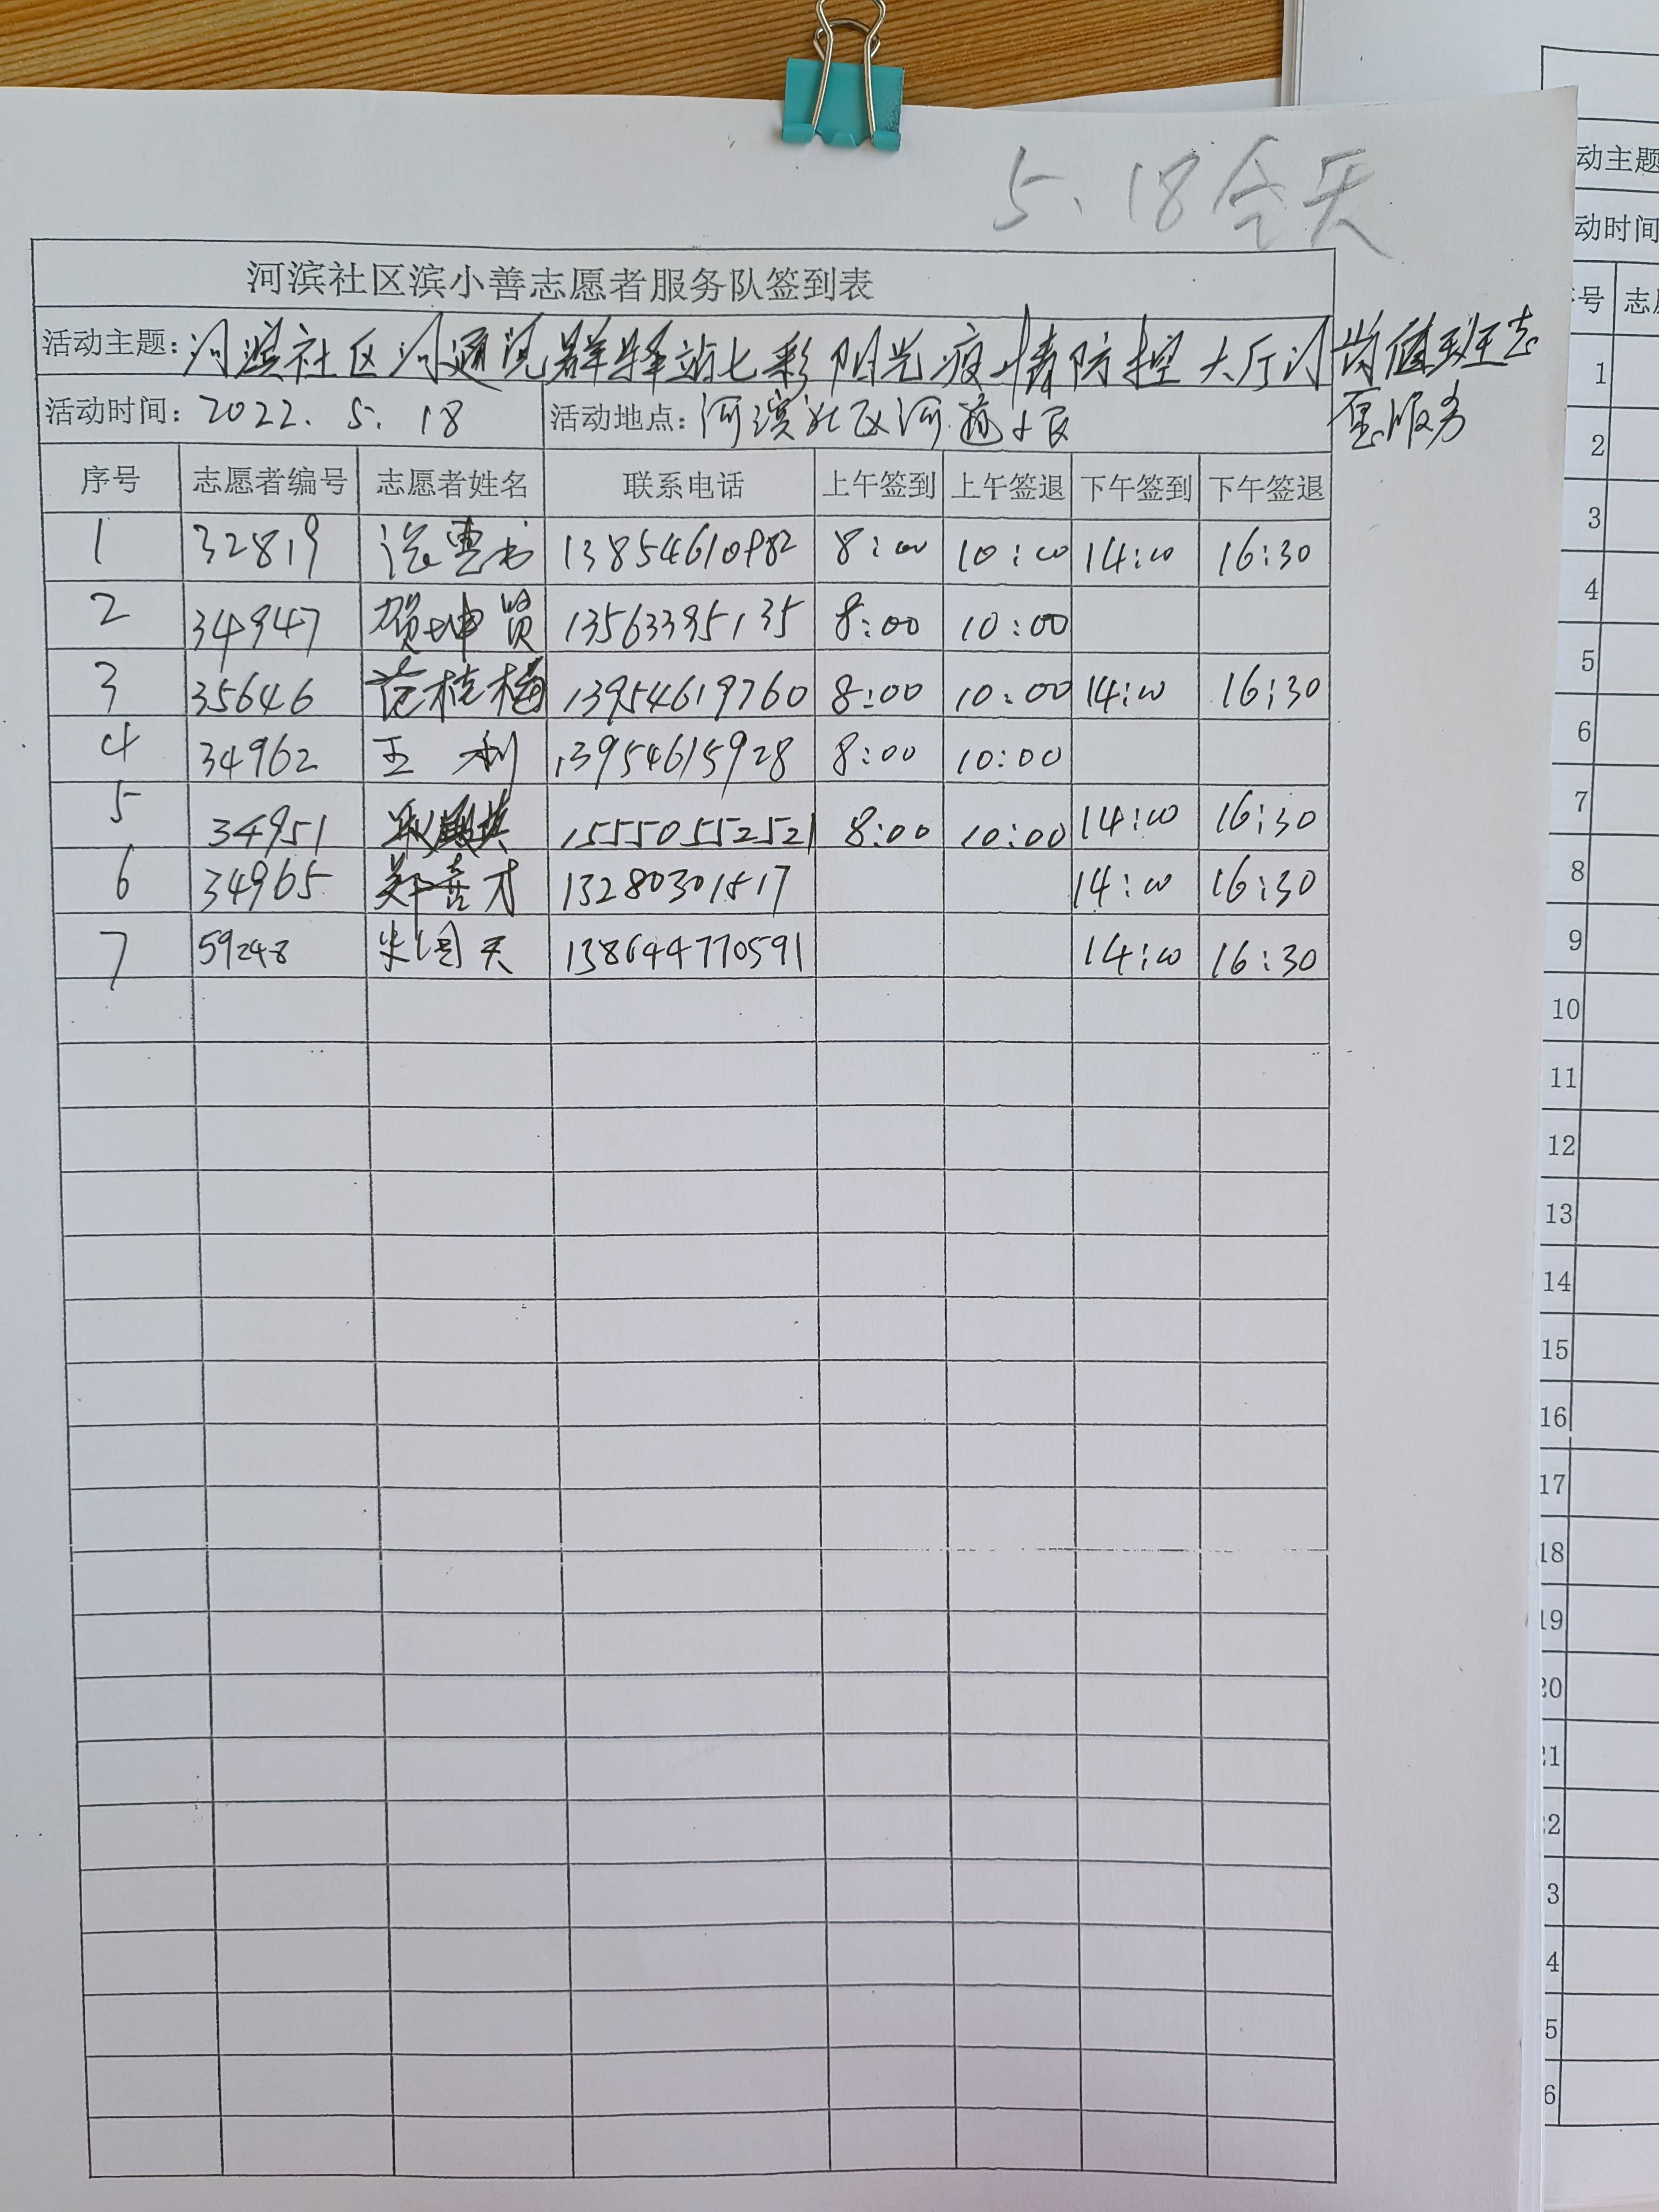 5.18全天
河滨社区滨小善志愿者服务队签到表
活动主题：河滨社区河通党群驿站七彩阳光疫情防控大厅门岗值班志
愿服务
活动时间：2022.5.18 活动地点：河滨社区河通小区
序号 志愿者编号 志愿者姓名 联系电话 上午签到 上午签退 下午签到 下午签退
1 32819 13854610982 8:00 10:00 14:00 16:30
2 34947 贺坤贤 13563395135 8:00 10:00
3 35646 范桂梅 13954619760 8:00 10:00 14:00 16:30
4 34962 王利 13954615928 8:00 10:00
5 34951 15550552521 8:00 10:00 14:00 16:30
6 34965 郑善才 13280301517 14:00 16:30
7 59248 138644770591 14:00 16:30
动主题
动时间
号 志
1
2
3
4
5
6
7
8
9
10
11
12
13
14
15
16
17
18
19
20
21
22
3
4
5
6